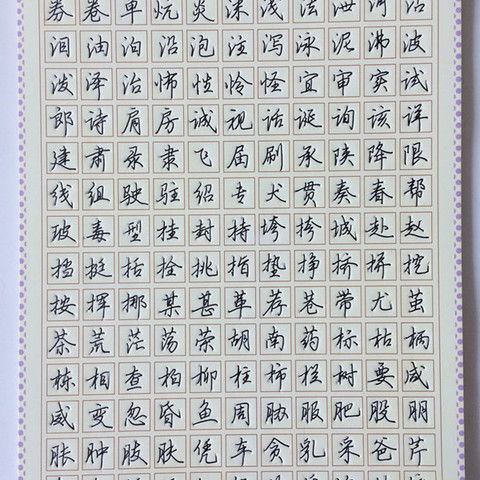 券 卷 单 炕 炎 沫 浅 法 泄 河 沾
泪 油 泊 沿 泡 注 泻 泳 泥 沸 波
泼 泽 治 怖 性 怜 怪 宜 审 实 试
郎 诗 肩 房 诚 视 话 诞 询 该 详
建 肃 录 隶 飞 届 刷 承 陕 降 限
线 组 驶 驻 绍 专 犬 贯 奏 春 帮
玻 毒 型 挂 封 持 垮 挎 城 赴 赵
挡 挺 括 拴 挑 指 垫 挣 挤 拼 挖
按 挥 挪 某 甚 革 荐 巷 带 尤 茧
茶 荒 茫 荡 荣 胡 南 药 标 枯 柄
栋 相 查 柏 柳 柱 柿 栏 树 要 咸
威 变 忽 昏 鱼 周 胁 服 肥 股 朋
胀 肿 肢 肤 凭 车 贪 乳 采 爸 芹